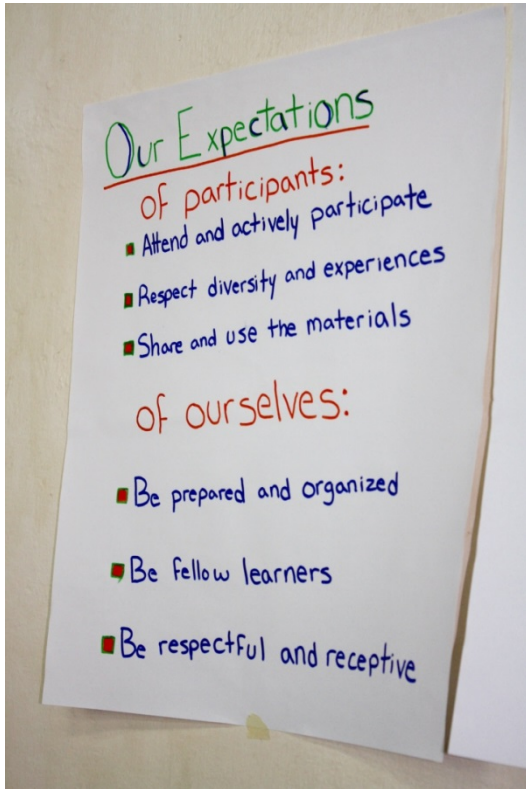 Our Expectations
of participants:
Attend and actively participate
Respect diversity and experiences
Share and use the materials
of ourselves:
Be prepared and organized
Be fellow learners
Be respectful and receptive